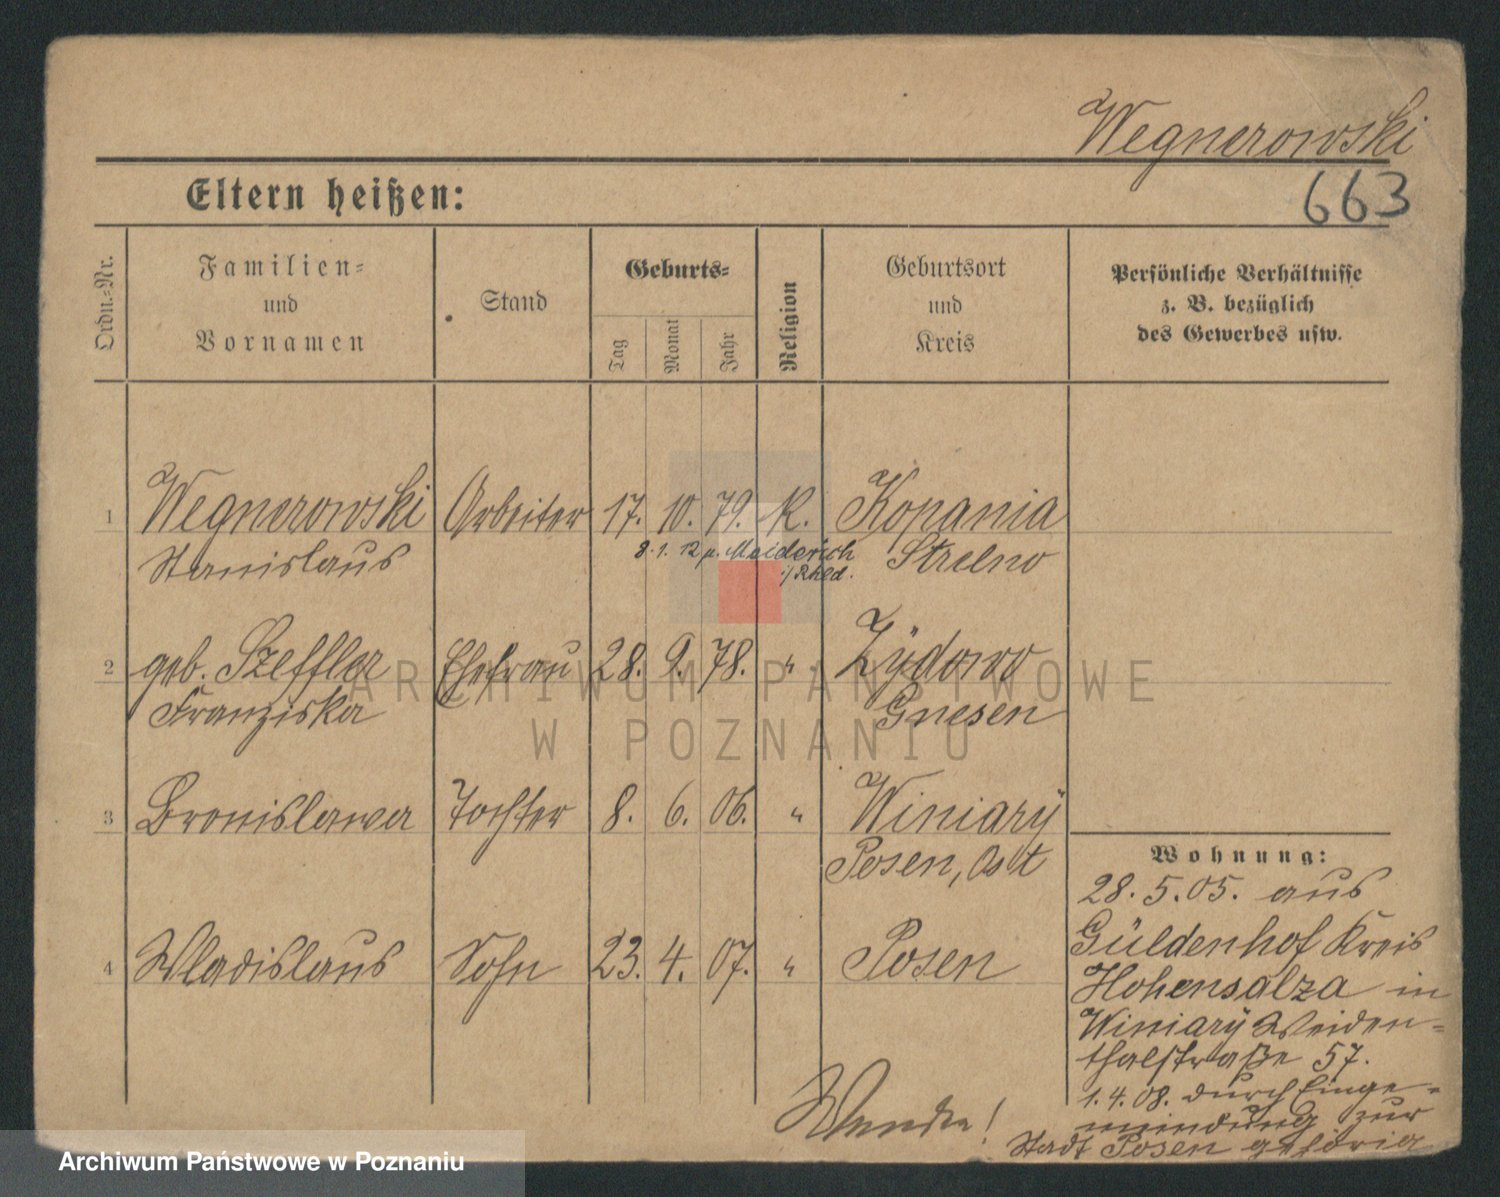 Wegnerowski
663
Eltern heißen:
Ordn.-Nr.
Familien-
und
Vornamen
Stand
Geburts-
Tag
Monat
Jahr
Religion
Geburtsort
und
Kreis
Persönliche Verhältnisse
z. B. bezüglich
des Gewerbes usw.
1 Wegnerowski Arbeiter 17. 10. 79. K. Kopania
Stanislaus Strelno
8.1.12 n. Meiderich
i/Rhld.
2 geb. Szeffler Ehefrau 28. 9. 78. " Zÿdowo
Franziska Gnesen
3 Bronislawa Tochter 8. 6. 06. " Winiarÿ
Posen, Ost
4 Wladislaus Sohn 23. 4. 07. " Posen
Wohnung:
28.5.05. aus
Güldenhof Kreis
Hohensalza in
Winiarÿ Weiden-
thalstraße 57.
1.4.08. durch Einge-
meindung zur
Stadt Posen gehörig
Wenden!
ARCHIWUM PAŃSTWOWE
W POZNANIU
Archiwum Państwowe w Poznaniu